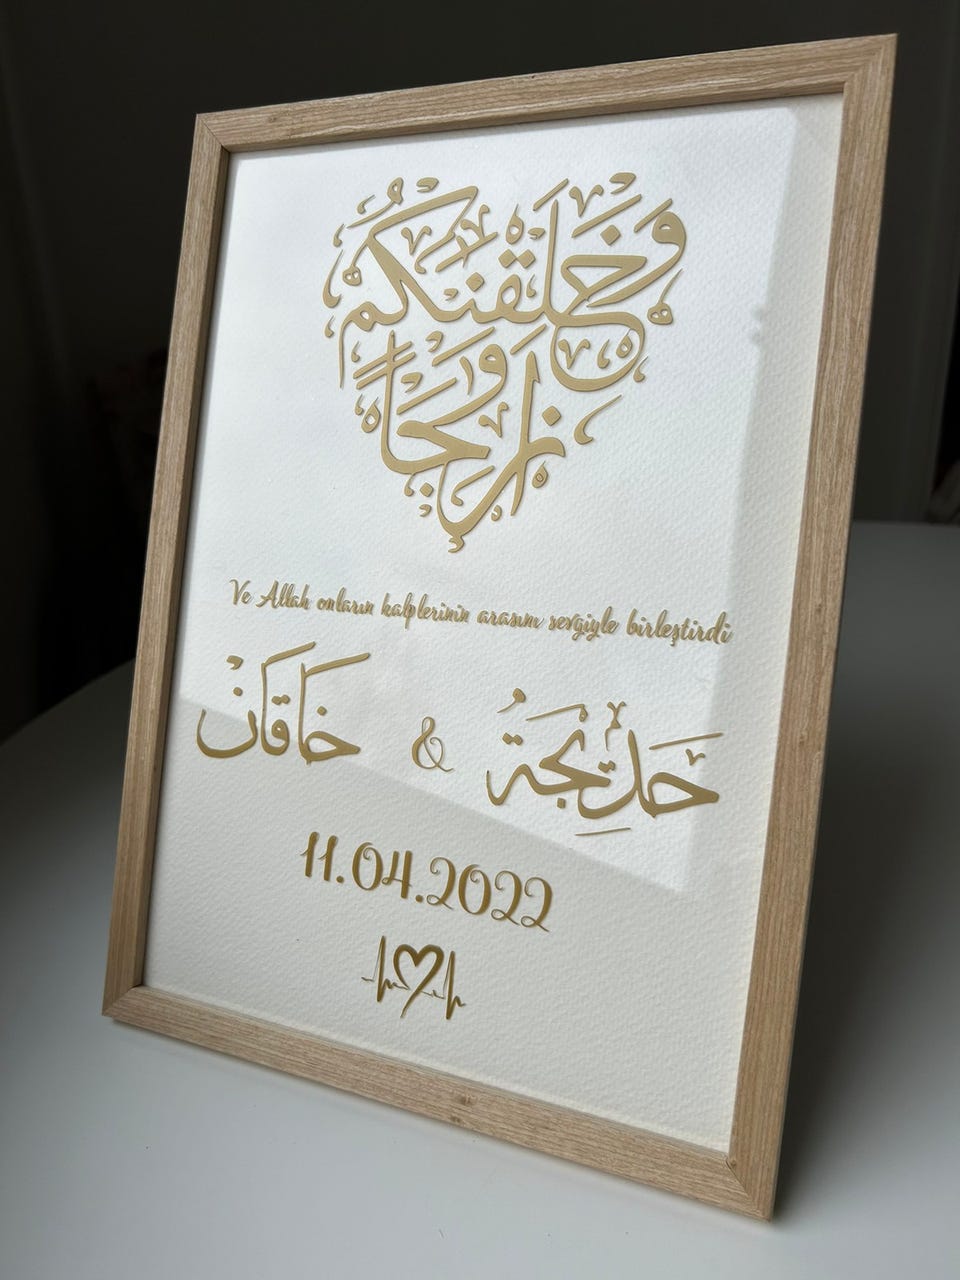 وَخَلَقْنَٰكُمْ
أَزْوَٰجًا
Ve Allah onların kalplerinin arasını sevgiyle birleştirdi
حَدِيجَةُ & خاقانْ
11.04.2022